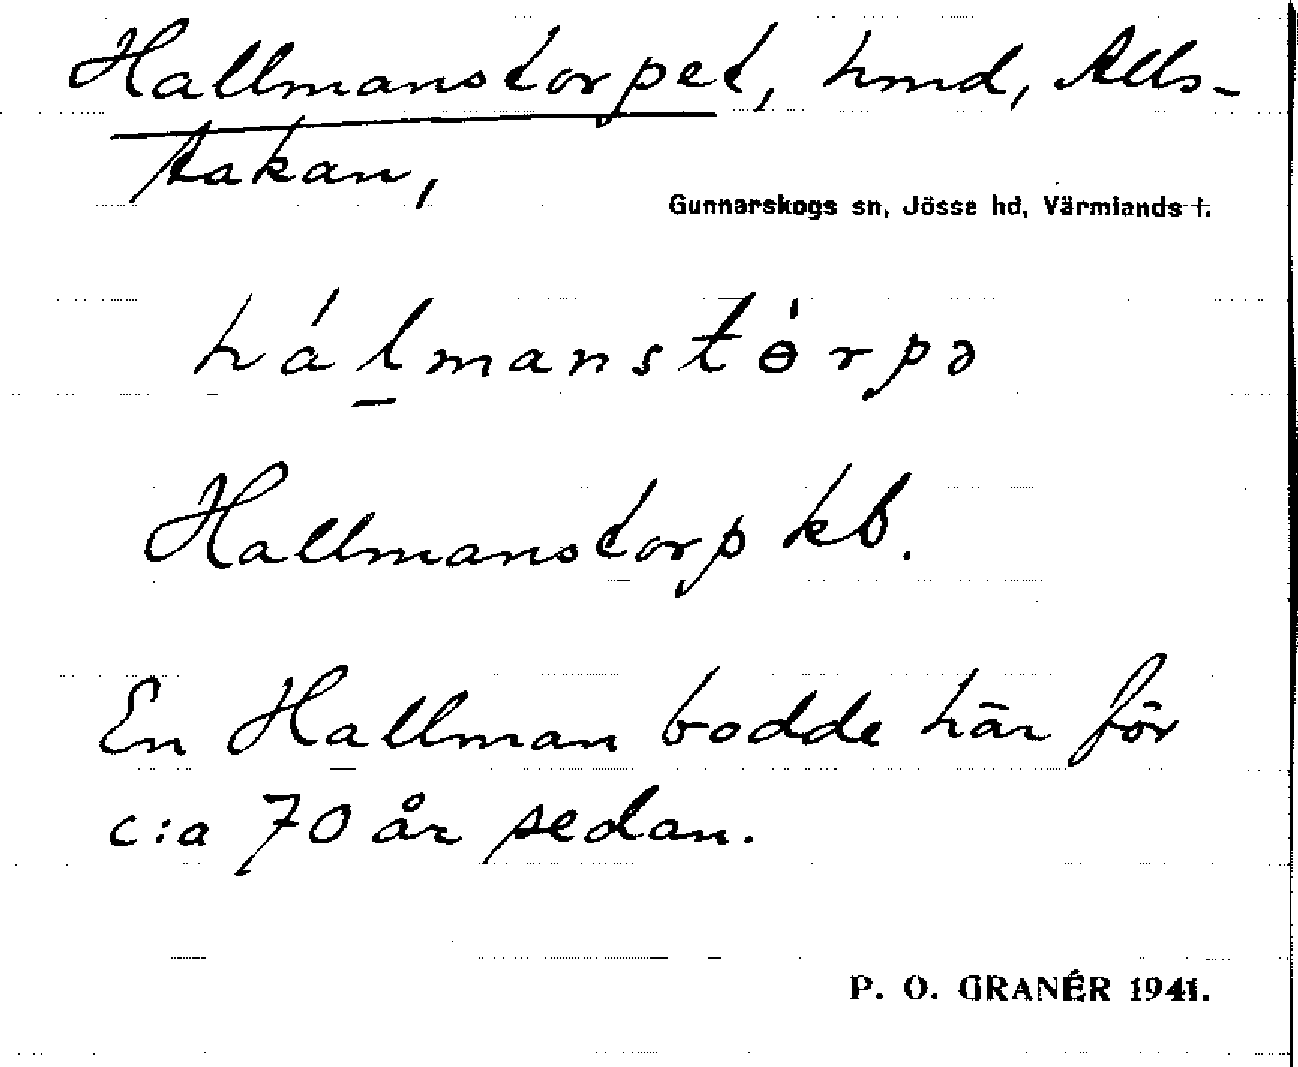 Hallmanstorpet, hmd, Alls-
takan,
Gunnarskogs sn, Jösse hd, Värmlands l.
hálmanstɵ́rpə
Hallmanstorp kb.
En Hallman bodde här för
c:a 70 år sedan.
P. O. GRANÉR 1941.